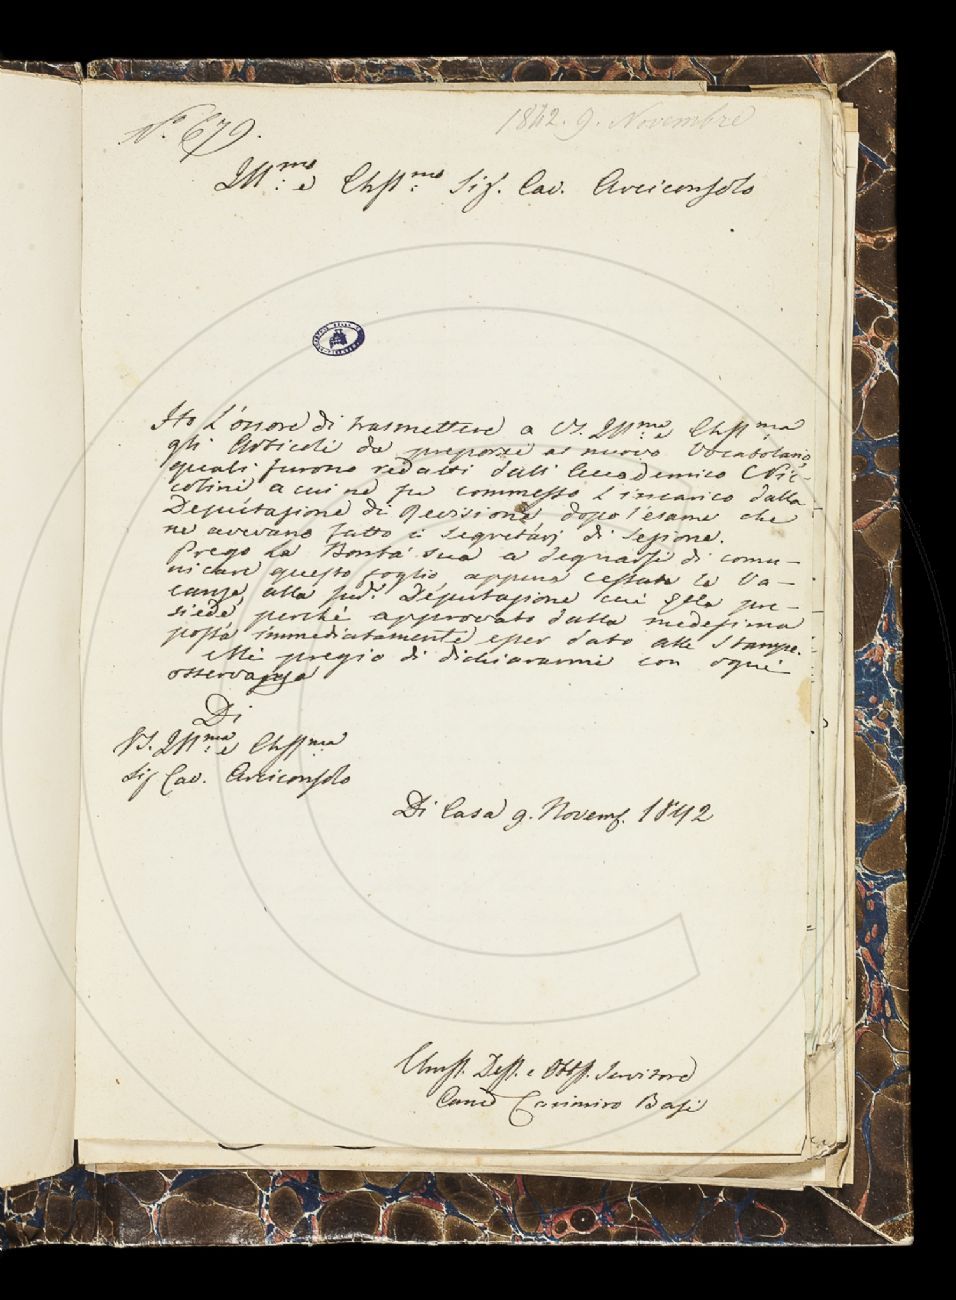 N.° 679.
1842. 9. Novembre
Ill.mo e Ch.ssmo Sig. Cav. Arciconsolo
Ho l'onore di trasmettere a VS. Ill.ma e Chss.ma
gli Articoli da preporsi al nuovo Vocabolario,
quali furono redatti dall'Accademico Nic-
colini a cui ne fu commesso l'incarico dalla
Deputazione di Revisione dopo l'esame che
ne avevano fatto i Segretarj di Sezione.
Prego la Bontà sua a degnarsi di comu-
nicare questo foglio appena cessata la Va-
canza alla sud.a Deputazione cui Ella pre-
siede, perchè approvato dalla medesima
possa immediatamente esser dato alle Stampe.
Mi pregio di dichiararmi con ogni
osservanza
Di
VS. Ill.ma e Chss.ma
Sig Cav. Arciconsolo
Di Casa 9. Novemb. 1842
Umss. Dess. e Obbss. Servitore
Can.co Casimiro Basi